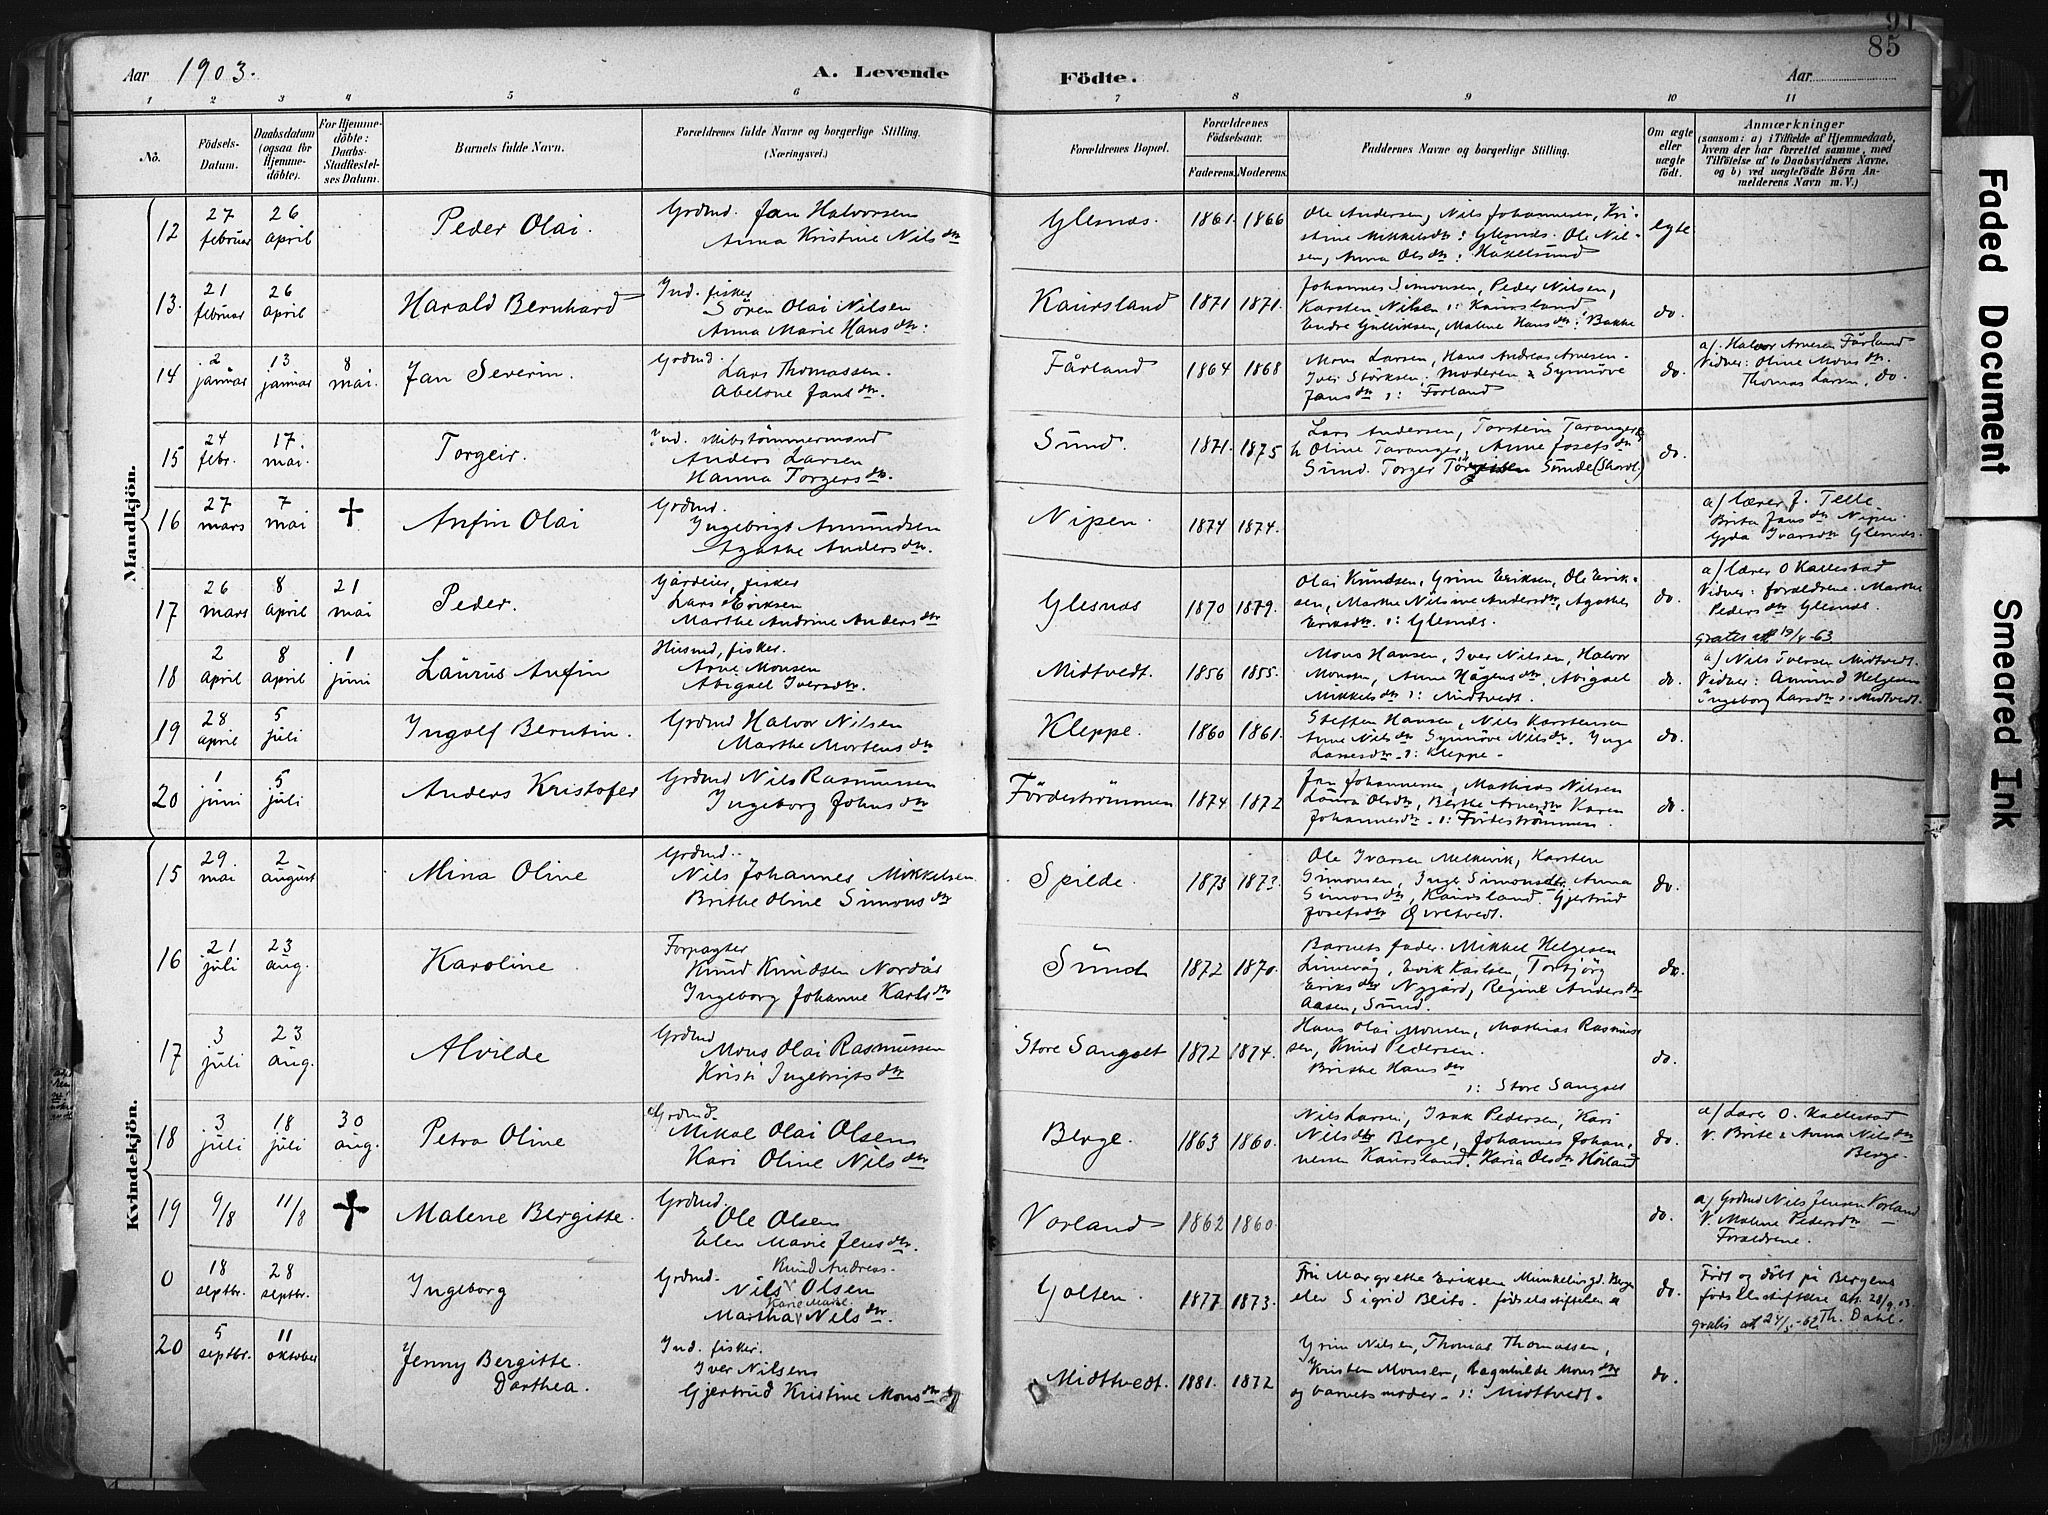 91
85
Aar 1903. A. Levende Födte. Aar
1 2 3 4 5 6 7 8 9 10 11
No. Födsels-Datum. Daabsdatum (ogsaa for Hjemme-döbte). For Hjemme-döbte: Daabs-Stadfæstelses Datum. Barnets fulde Navn. Forældrenes fulde Navne og borgerlige Stilling. (Næringsvei.) Forældrenes Bopæl. Forældrenes Födselsaar. Faderens. Moderens. Faddernes Navne og borgerlige Stilling. Om ægte eller uægte født. Anmærkninger (saasom: a) i Tilfælde af Hjemmedaab, hvem der har forrettet samme, med Tilföielse af to Daabsvidners Navne, og b) ved uægtefödte Börn Anmelderens Navn m. V.)
Mandkjön.
12 27 februar 26 april Peder Olai. Grdmd. Jan Halvorsen
Anna Kristine Nilsdtr Glesnæs. 1861. 1866 Ole Andersen, Nils Johannesen, Kri-
stine Mikkelsdtr: Glesnæs. Ole Nil-
sen, Anna Olsdtr: Häkelsund egte
13. 21 februar 26 april Harald Bernhard Ind. fisker
Sören Olai Nilsen
Anna Marie Hansdtr: Kaursland 1871 1871. Johannes Simonsen, Peder Nilsen,
Karsten Nilsen ɔ: Kaursland,
Endre Gulliksen, Malene Hansdtr: Bakke do.
14 2 januar 13 januar 8 mai. Jan Severin. Grdmd.
Lars Thomassen.
Abelone Jansdtr. Fårland 1864 1868 Mons Larsen, Hans Andreas Arnesen.
Iver Störksen, Moderen & Synnöve
Jansdtr ɔ: Forland do. a/. Halvor Arnesen Fårland
Vidner: Oline Monsdtr.
Thomas Larsen, do.
15 24 febr. 17 mai. Torgeir. Ind. skibstömmermand
Anders Larsen
Hanna Torgersdtr. Sund. 1871. 1875 Lars Andersen, Torstein Taranger
Oline Taranger, Anne Josefsdtr
Sund. Torger Sunde do.
16 27 mars 7 mai † Anfin Olai Grdmd.
Ingebrigt Amundsen
Agathe Andersdtr. Nipen. 1874 1874. a/ lærer J. Telle
Brita Jansdtr Nipen.
Gyda Ivarsdtr Glesnæs.
17 26 mars 8 april 21 mai Peder. Gårdeier, fisker
Lars Eriksen
Marthe Andrine Andersdtr Glesnæs 1870 1879. Olai Knudsen, Grim Eriksen, Ole Erik-
sen, Marthe Nilsine Andersdtr, Agathe
Eriksdtr. ɔ: Glesnæs. do. a/ lærer O Kallestad
Vidner: forældrene. Marthe
Pedersdtr Glesnæs.
18 2 april 8 april 1 juni Laurus Anfin Husmd, fisker.
Arne Monsen
Abigael Iversdtr. Midtvedt. 1856 1855. Mons Hansen, Iver Nilsen, Halvor
Monsen, Anne Hågensdtr, Abigael
Mikkelsdtr ɔ: Midtvedt. do. a/ Nils Iversen Midtvedt.
Vidner: Amund Helgesen
Ingeborg Larsdtr ɔ: Midtvedt.
19 28 april 5 juli Ingolf Berntin. Grdmd Halvor Nilsen
Marthe Mortensdtr Kleppe. 1860 1861. Steffen Hansen, Nils Karstensen
Anne Nilsdtr Synnöve Nilsdtr. Inge
Larsesdtr ɔ: Kleppe. do.
20 1 juni 5 juli Anders Kristofer Grdmd Nils Rasmussen
Ingeborg Johnsdtr Fördeströmmen 1874 1872 Jan Johannesen, Mathias Nilsen
Laura Olsdtr, Berthe Arnesdtr Karen
Johannesdtr. ɔ: Fördeströmmen. do.
Kvindekjön.
15 29. mai 2 august Mina Oline Grdmd.
Nils Johannes Mikkelsen
Brithe Oline Simonsdtr Spilde. 1873 1873. Ole Ivarsen Melkevik, Karsten
Simonsen, Inge Simonsdtr, Anna
Simonsdtr, Kaursland. Gjertrud
Josefsdtr do.
16 21 juli 23 aug. Karoline Forpagter
Knud Knudsen Nordås
Ingeborg Johanne Karlsdtr Sund 1872 1870. Barnets fader. Mikkel Helgesen
Limevåg, Erik Karlsen, Torbjörg
Eriksdtr Nygård, Regine Andersdtr
Aasen, Sund. do.
17 3 juli 23 aug. Alvilde Grdmd
Mons Olai Rasmussen
Kristi Ingebrigtsdtr Store Sangolt 1872 1874. Hans Olai Monsen, Mathias Rasmus
sen, Knud Pedersen.
Brithe Hansdtr
ɔ: Store Sangolt do.
18 3 juli 18 juli 30 aug. Petra Oline Grdmd.
Mikal Olai Olsen
Kari Oline Nilsdtr Berge. 1863 1860. Nils Larsen, Isak Pedersen, Kari
Nilsdtr Berge, Johannes Johan-
nesen Kaursland. Karia Olsdtr Höiland do. a/ Lærer O. Kallestad
V. Brite & Anna Nilsdtr
Berge.
19 9/8 11/8 † Malene Bergitte. Grdmd.
Ole Olsen
Elen Marie Jensdtr. Vorland 1862 1860. do. a/ Grdmd Nils Jensen Vorland
V. Malene Pedersdtr
Forældrene.
0 18 septbr. 28 septbr. Ingeborg Grdmd. Knud Andreas.
Nils Olsen
Karie Marie.
Martha Nilsdtr. Golten. 1877 1873. Fru Margrethe Eriksen Munkelivsgd. Bergen
elev Sigrid Blito. födselsstiftelsen do. Født og döbt på Bergens
födselsstiftelse att. 28/9 03.
Th. Dahl.
20 5 septbr. 11 oktober Jenny Bergitte.
Dorthea. Ind. fisker.
Iver Nilsen
Gjertrud Kristine Monsdtr Midttvedt. 1881. 1872 Grim Nilsen, Thomas Thomassen,
Kristen Monsen, Ragnhilde Monsdtr
og barnets moder. ɔ: Midttvedt. do.
Faded Document
Smeared Ink